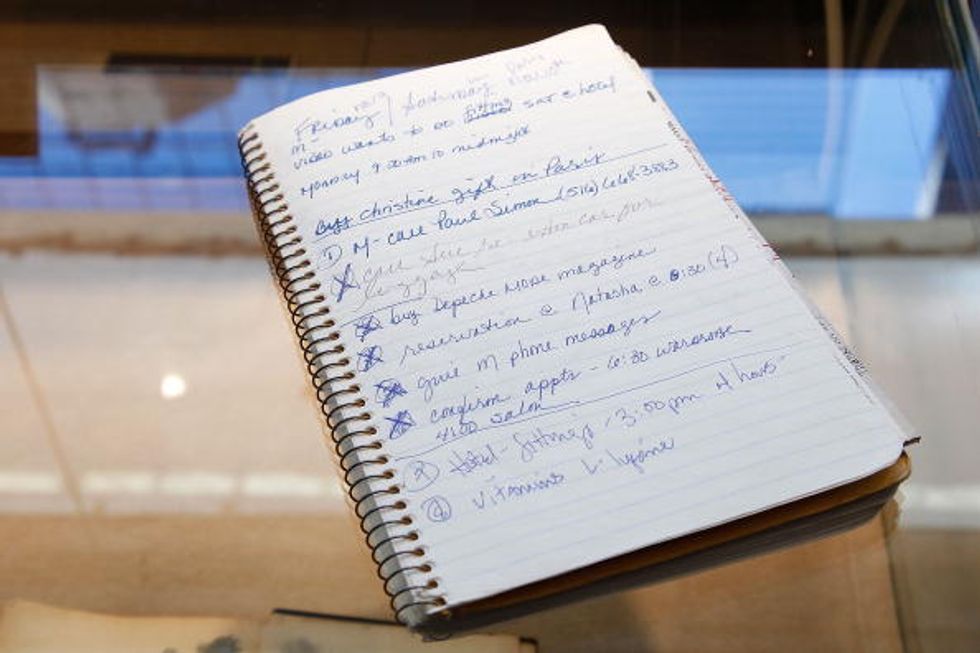 Friday / Saturday
M -
video wants to do fitting sat @ hotel
Monday 9:00am to midnight
Buy Christine gift in Paris
① M- call Paul Simon (516) 668-3883
call
luggage
buy Depeche Mode magazine
reservation @ Natasha @ 6:30 (4)
give M phone messages
confirm appts - 6:30 wardrobe
4:00 salon
② Hotel-fittings, 3:00pm 4 hours
vitamins L-lysine